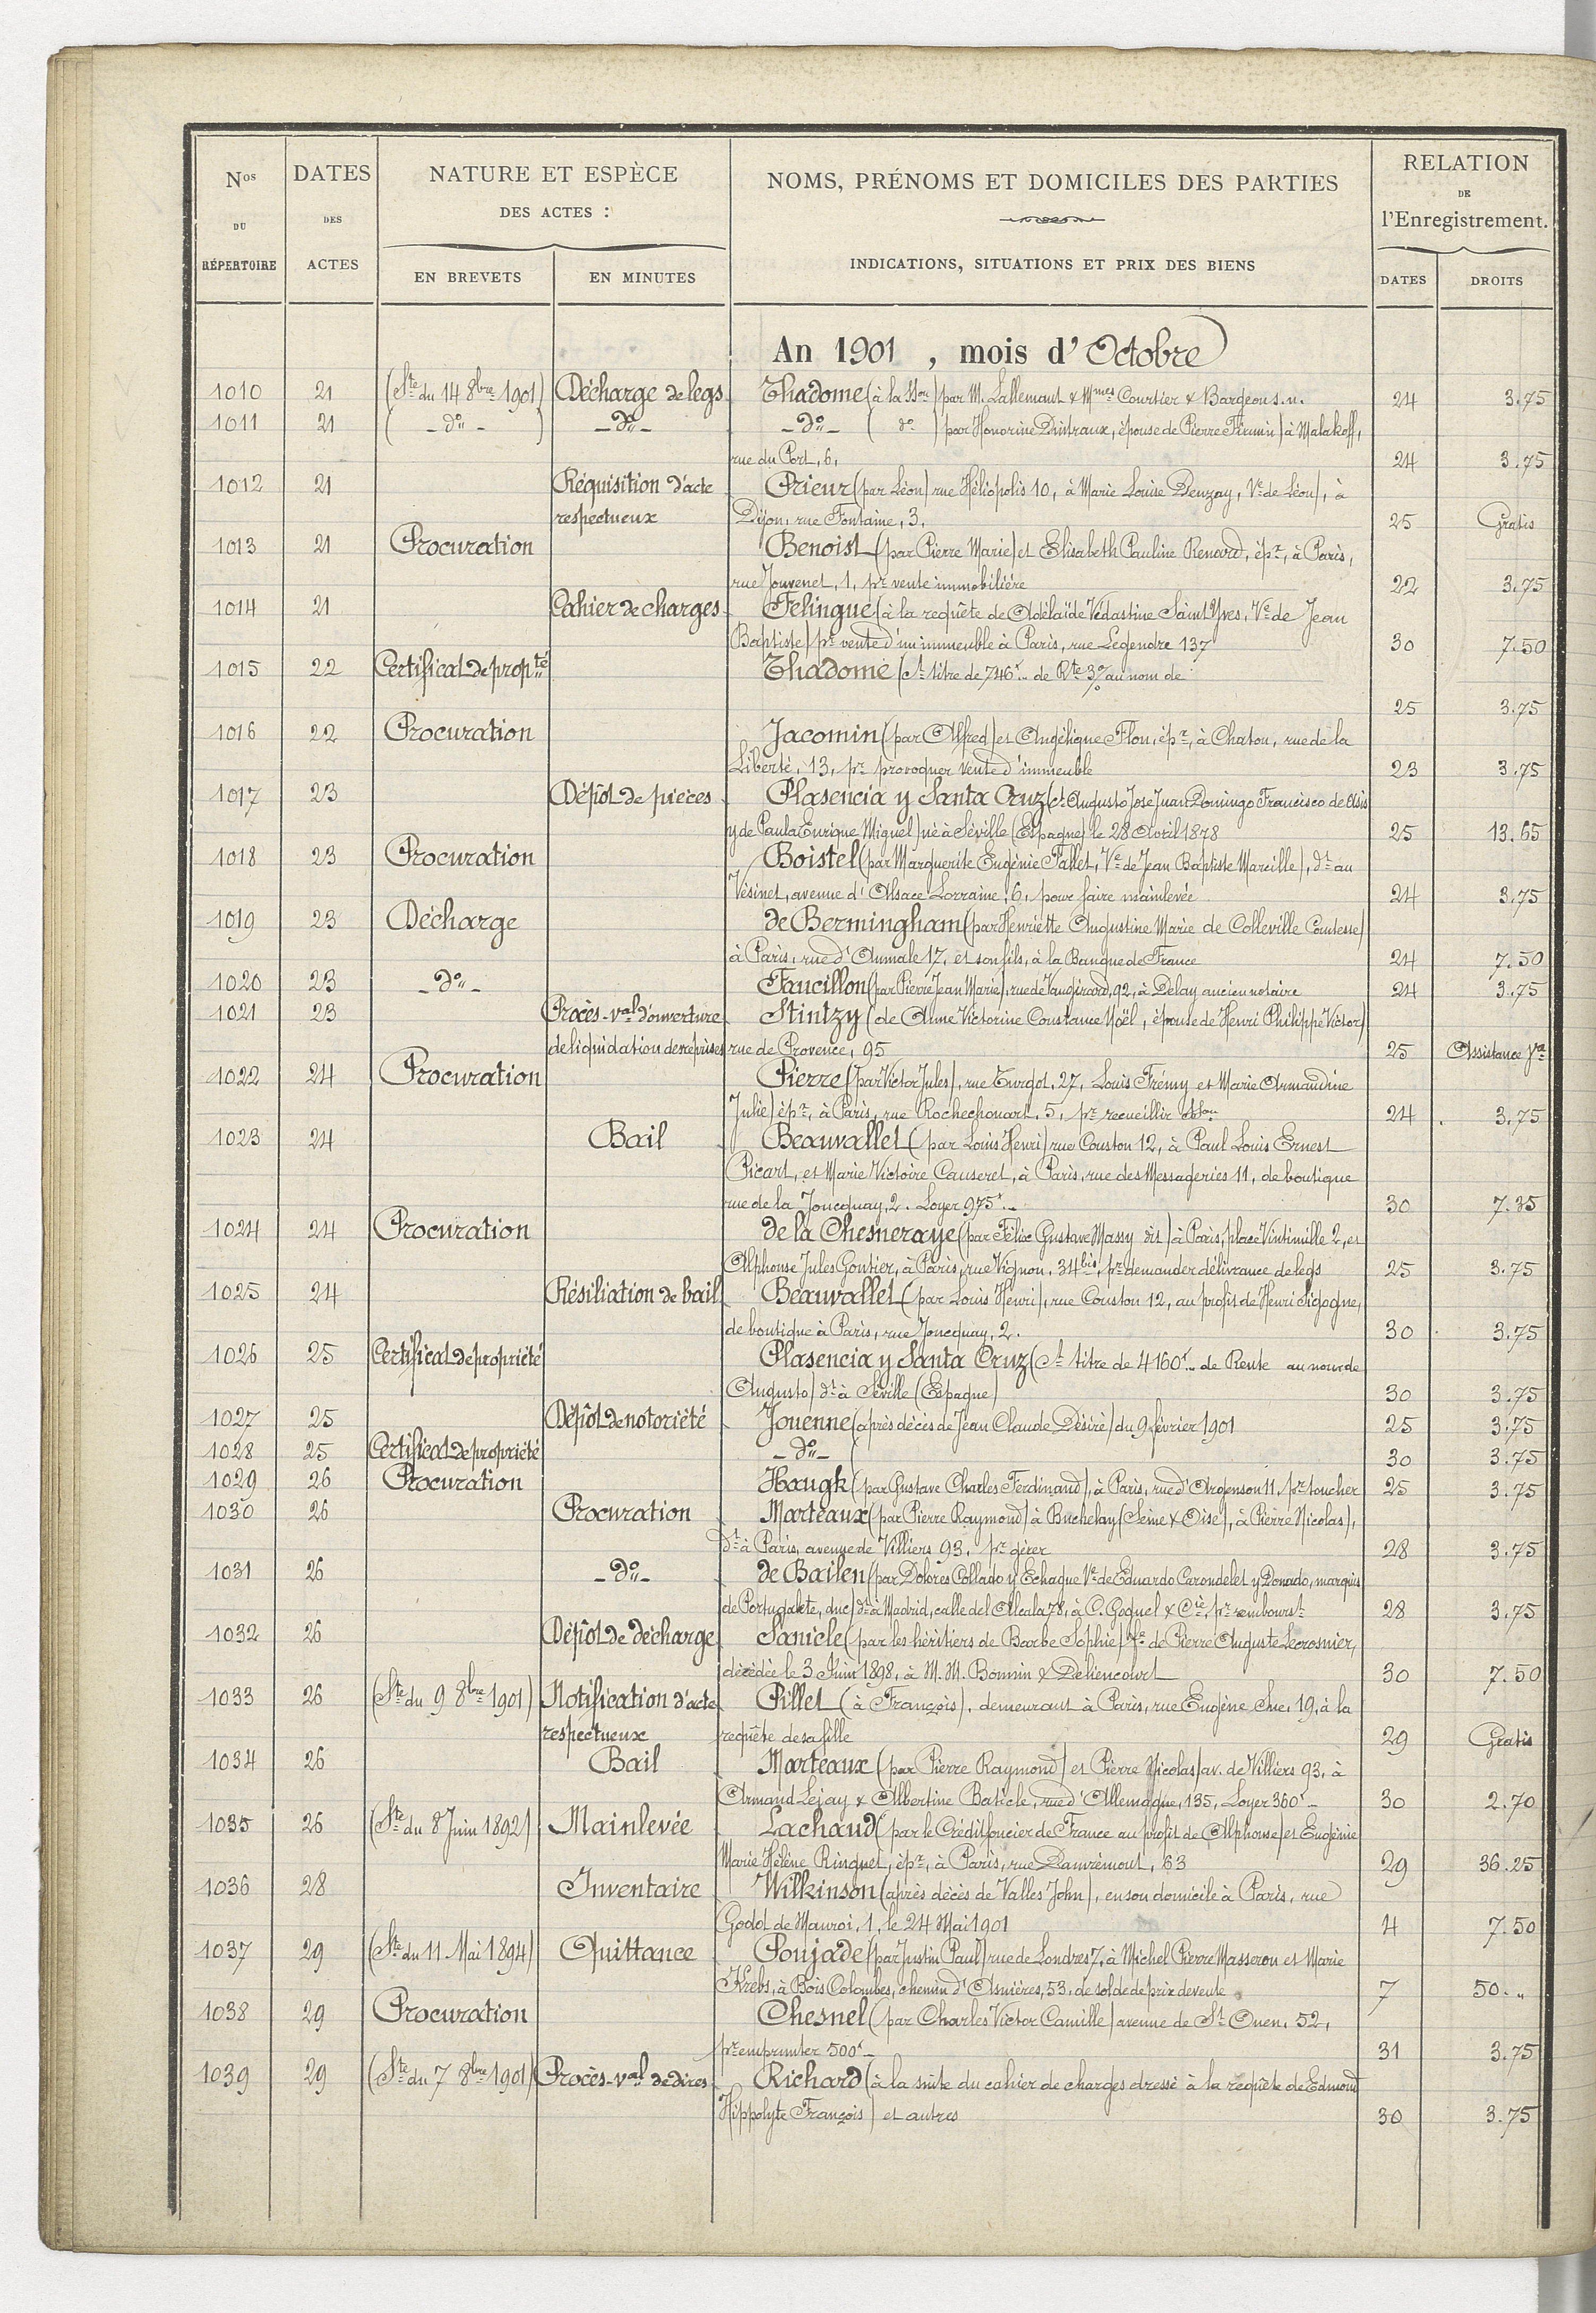 Nos DU RÉPERTOIRE
DATES DES ACTES
NATURE ET ESPÈCE DES ACTES :
EN BREVETS
EN MINUTES
NOMS, PRÉNOMS ET DOMICILES DES PARTIES
INDICATIONS, SITUATIONS ET PRIX DES BIENS
RELATION DE l'Enregistrement.
DATES
DROITS
An 1901, mois d'Octobre
1010 21 (Ste du 14 8bre 1901) Décharge de legs Thadome (à la Son) par M. Lallemant & Mmes Courtier & Bargeon s.n. 24 3.75
1011 21 (-do-) -do- -do- (do) par Honorine Distraux, épouse de Pierre Firmin) à Malakoff,
rue du Port, 6, 24 3.75
1012 21 Réquisition d'acte Prieur (par Léon) rue Héliopolis 10, à Marie Louise Denzay, Ve de Léon), à
respectueux Dijon, rue Fontaine, 3, 25 Gratis
1013 21 Procuration Benoist (par Pierre Marie) et Elisabeth Pauline Renard, épx, à Paris,
rue Jouvenet, 1, pr vente immobilière 22 3.75
1014 21 Cahier de charges Felingue (à la requête de Adélaïde Védastine Saint Yves, Ve de Jean
Baptiste) pr vente d'un immeuble à Paris, rue Legendre 137 30 7.50
1015 22 Certificat de propté Thadome (St titre de 746f.. de Rte 3% au nom de
25 3.75
1016 22 Procuration Jacomin (par Alfred) et Angélique Flon, épx, à Chatou, rue de la
Liberté, 13, pr provoquer vente d'immeuble 23 3.75
1017 23 Dépôt de pièces Plasencia y Santa Cruz (ct Augusto Jose Juan Domingo Francisco de Asis
y de Paula Enrique Miguel) né à Séville (Espagne) le 28 Avril 1878 25 13.65
1018 23 Procuration Boistel (par Marguerite Eugénie Fallet, Ve de Jean Baptiste Marcille), dt au
Vésinet, avenue d'Alsace Lorraine, 6, pour faire mainlevée 24 3.75
1019 23 Décharge de Bermingham (par Henriette Augustine Marie de Colleville Comtesse)
à Paris, rue d'Aumale 17, et son fils, à la Banque de France 24 7.50
1020 23 -do- Faucillon (par Pierre Jean Marie), rue de Vaugirard, 92, à Delay ancien notaire 24 3.75
1021 23 Procès-val d'ouverture Stintzy (de Anne Victorine Constance Noël, épouse de Henri Philippe Victor)
de liquidation de reprises rue de Provence, 95 25 Assistance Jre
1022 24 Procuration Pierre (par Victor Jules), rue Turgot, 27, Louis Frémy et Marie Armandine
Julie) épx, à Paris, rue Rochechouart, 5, pr recueillir 24 3.75
1023 24 Bail Beauvallet (par Louis Henri) rue Couston 12, à Paul Louis Ernest
Picart, et Marie Victoire Causeret, à Paris, rue des Messageries 11, de boutique
rue de la Joncquay, 2. Loyer 975f.- 30 7.35
1024 24 Procuration de la Chesneraye (par Félix Gustave Massy dit) à Paris, place Vintimille 2, et
Alphonse Jules Gontier, à Paris, rue Vignon, 34bis, pr demander délivrance de legs 25 3.75
1025 24 Résiliation de bail Beauvallet (par Louis Henri), rue Couston 12, au profit de Henri Sigogne,
de boutique à Paris, rue Joncquay, 2. 30 3.75
1026 25 Certificat de propriété Plasencia y Santa Cruz (St titre de 4160f.. de Rente au nom de
Augusto) dt à Séville (Espagne) 30 3.75
1027 25 Dépôt de notoriété Jouenne (après décès de Jean Claude Désiré) du 9 février 1901 25 3.75
1028 25 Certificat de propriété -do- ( 30 3.75
1029 26 Procuration Haugk (par Gustave Charles Ferdinand), à Paris, rue d'Argenson 11, pr toucher 25 3.75
1030 26 Procuration Marteaux (par Pierre Raymond) à Buchelay (Seine & Oise), à Pierre Nicolas),
dt à Paris, avenue de Villiers 93, pr gérer 28 3.75
1031 26 -do- de Bailen (par Dolores Collado y Echague Ve de Eduardo Carondelet y Donado, marquis
de Portugalete, duc) dt à Madrid, calle del Alcala 78, à C. Goguel & Cie, pr rembourst 28 3.75
1032 26 Dépôt de décharge Sanicle (par les héritiers de Barbe Sophie) Ve de Pierre Auguste Lecrosnier,
décédée le 3 Juin 1898, à M.M. Bonnin & Deliencourt 30 7.50
1033 26 (Ste du 9 8bre 1901) Notification d'acte Pillet (à François), demeurant à Paris, rue Eugène Sue, 19, à la
respectueux requête de sa fille 29 Gratis
1034 26 Bail Marteaux (par Pierre Raymond) et Pierre Nicolas) av. de Villiers 93, à
Armand Lejay & Albertine Baticle, rue d'Allemagne, 135, Loyer 360f - 30 2.70
1035 26 (Ste du 8 Juin 1892) Mainlevée Lachaud (par le Crédit foncier de France au profit de Alphonse) et Eugénie
Marie Hélène Ringuet, épx, à Paris, rue Damrémont, 63 29 36.25
1036 28 Inventaire Wilkinson (après décès de Valles John), en son domicile à Paris, rue
Godot de Mauroi, 1, le 24 Mai 1901 4 7.50
1037 29 (Ste du 11 Mai 1894) Quittance Poujade (par Justin Paul) rue de Londres 7, à Michel Pierre Masseron et Marie
Krebs, à Bois Colombes, chemin d'Asnières, 53, de solde de prix de vente 7 50. "
1038 29 Procuration Chesnel (par Charles Victor Camille) avenue de St Ouen, 52,
pr emprunter 500f - 31 3.75
1039 29 (Ste du 7 8bre 1901) Procès-val de dires Richard (à la suite du cahier de charges dressé à la requête de Edmond
Hippolyte François) et autres 30 3.75